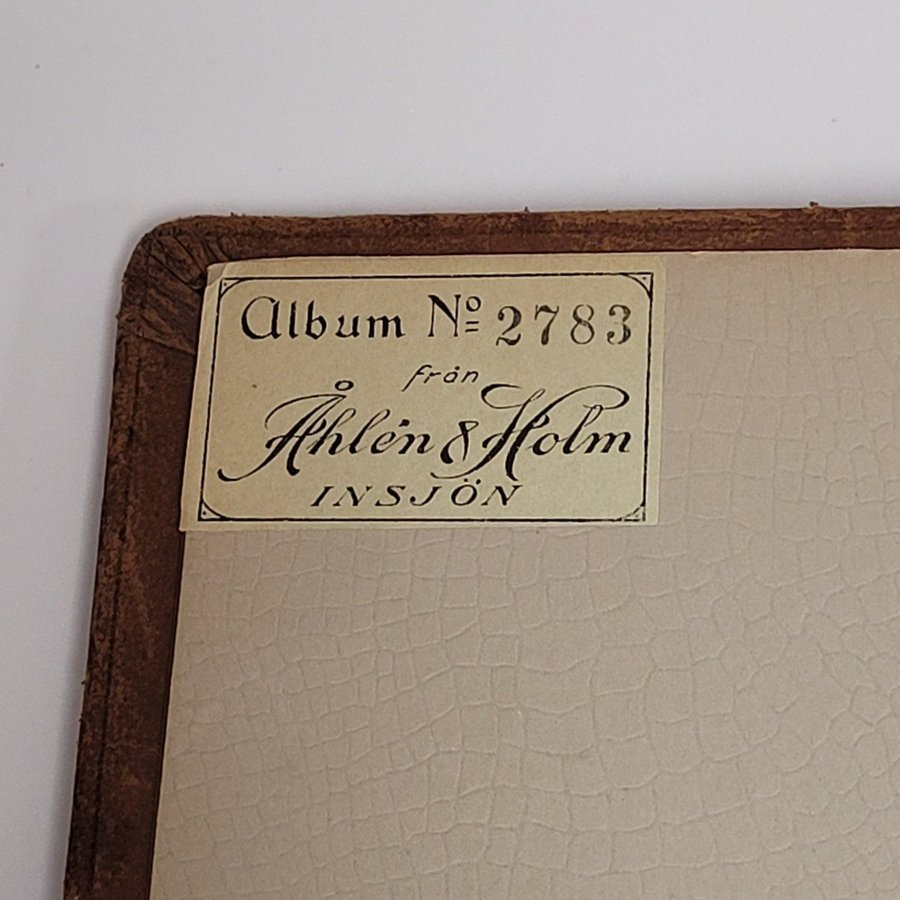 Album No 2783
från
Åhlén & Holm
INSJÖN